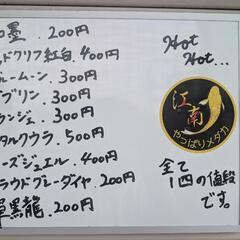 墨.200円
ドクリフ紅白.400円
ブルームーン.300円
ブリン.300円
ランジェ.300円
タルクウラ.500円
ーズジュエル.400円
ラウドグレーダイヤ.200円
黒龍.200円
Hot
Hot...
江南
やっぱりメダカ
全て
1匹の値段
です。